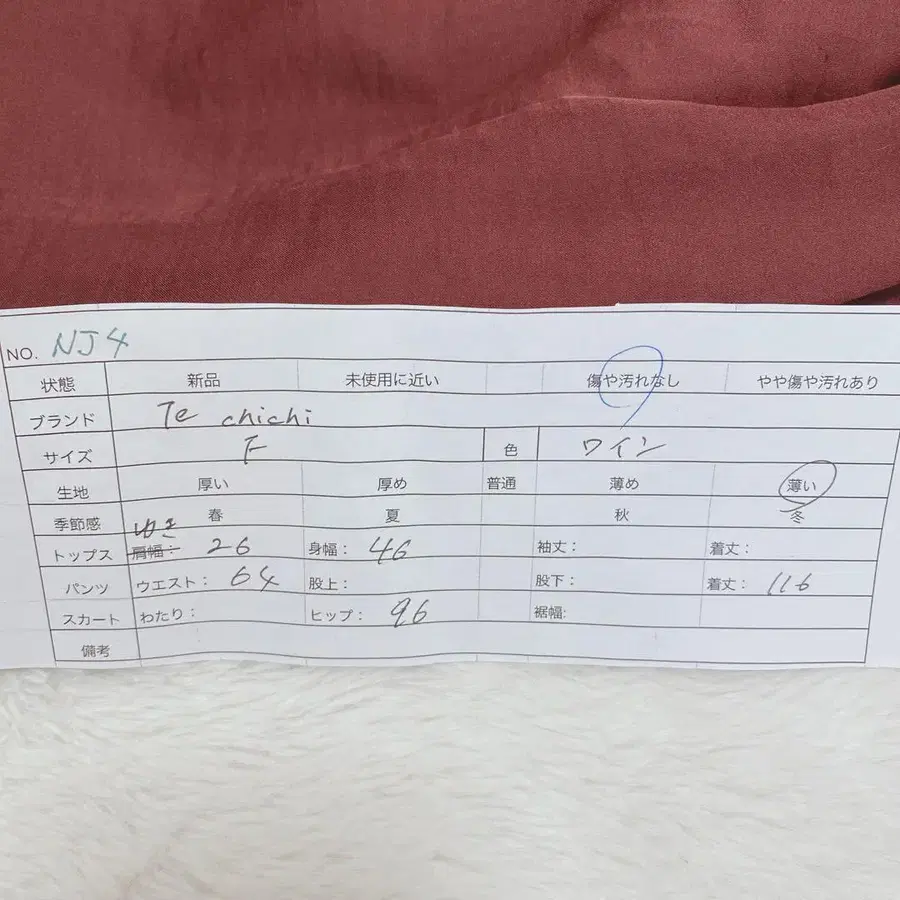 NO. NJ4
状態 新品 未使用に近い 傷や汚れなし やや傷や汚れあり
ブランド Te chichi
サイズ F 色 ワイン
生地 厚い 厚め 普通 薄め 薄い
季節感 春 夏 秋 冬
ゆき
トップス 肩幅: 26 身幅: 46 袖丈: 着丈:
パンツ ウエスト: 64 股上: 股下: 着丈: 116
スカート わたり: ヒップ: 96 裾幅:
備考